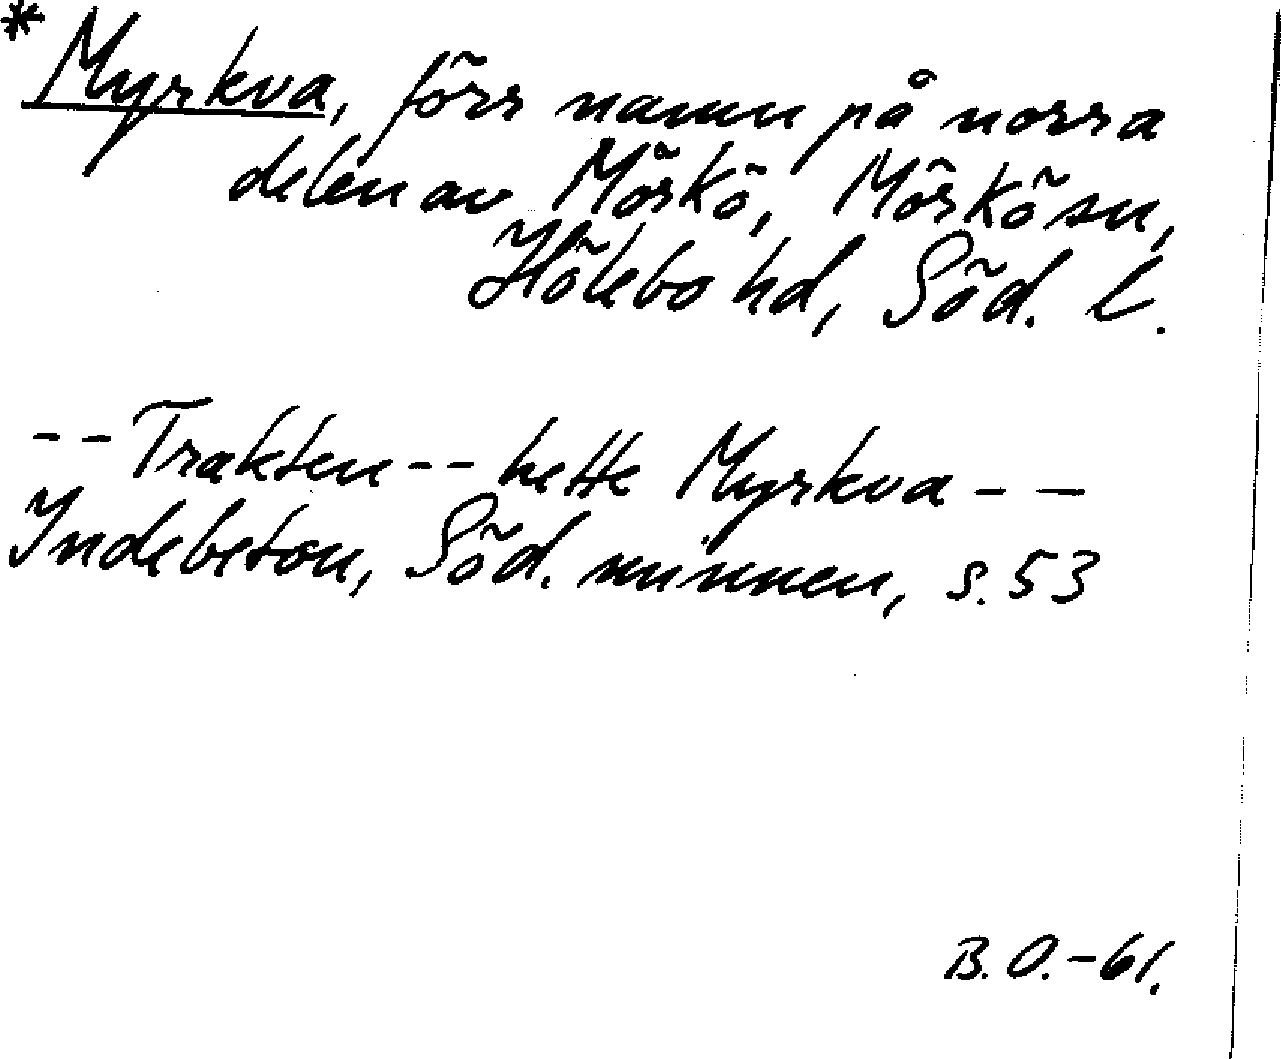 * Myrkva, förr namn på norra
delen av Mörkö, Mörkö sn,
Hölebo hd, Söd. l.
-- Trakten -- hette Myrkva --
Indebetou, Söd. minnen, s. 53
B. O. -61.